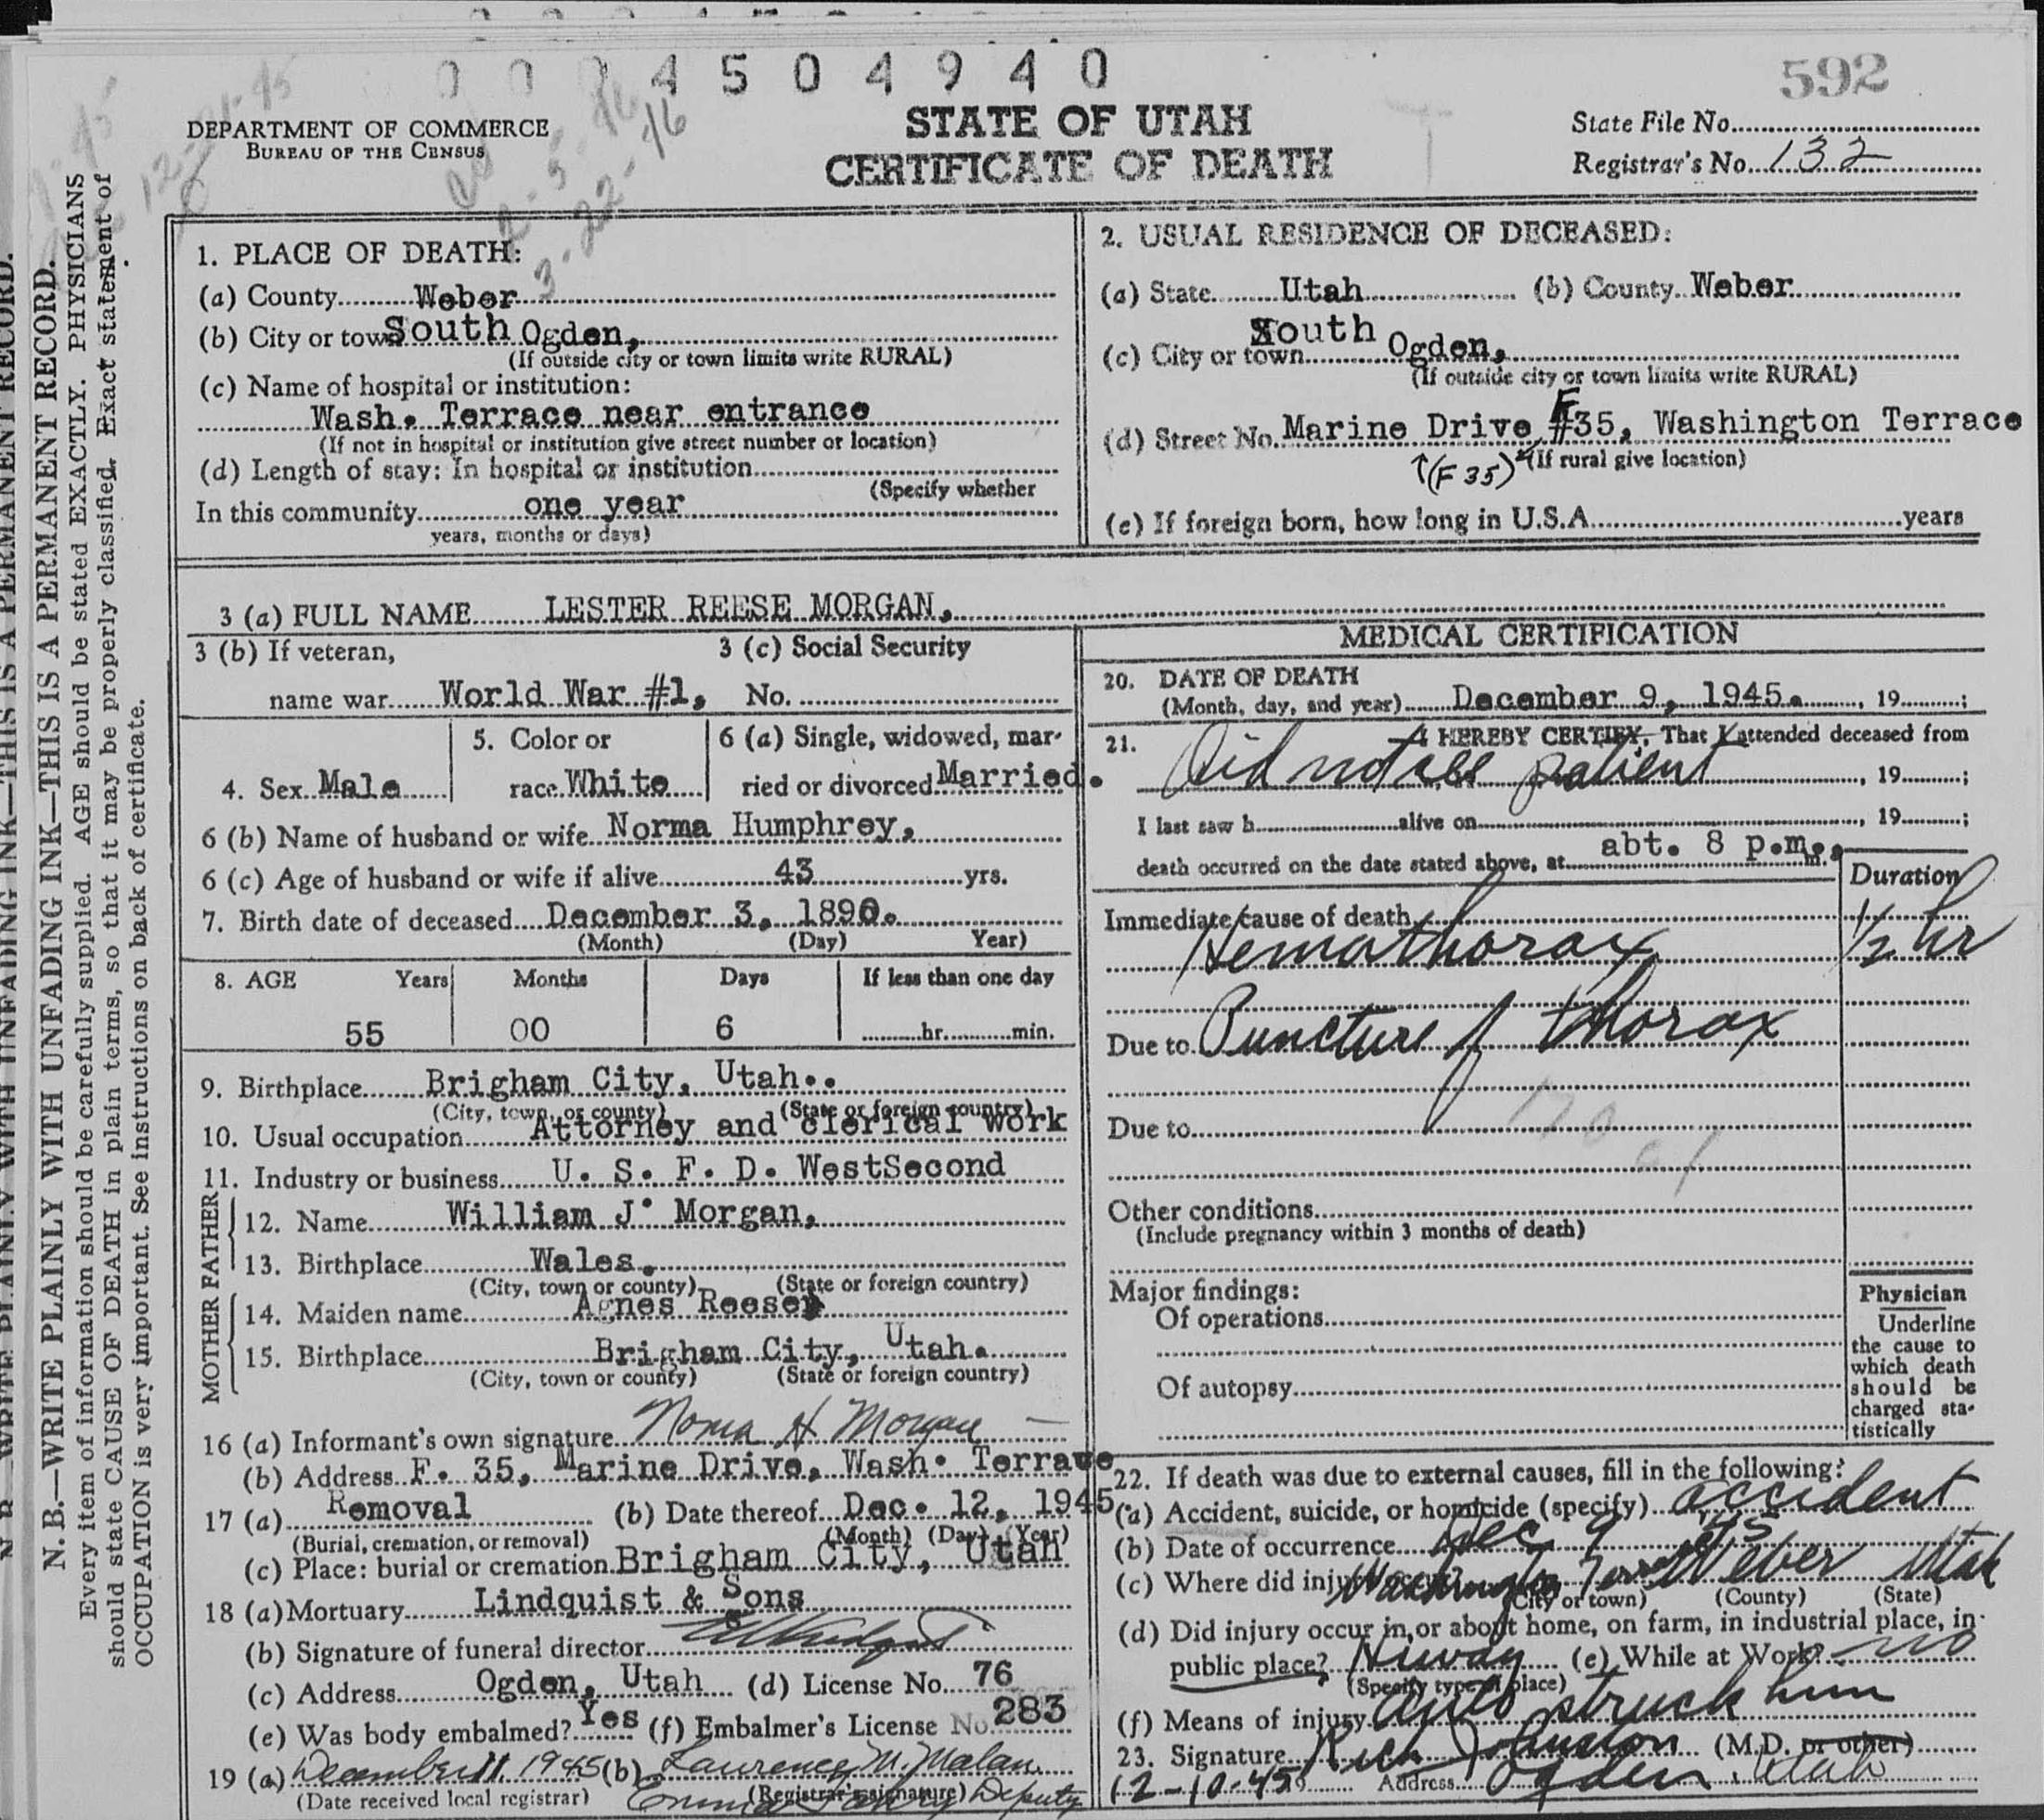 0 0 3 4 5 0 4 9 4 0
592
DEPARTMENT OF COMMERCE
BUREAU OF THE CENSUS
STATE OF UTAH
CERTIFICATE OF DEATH
State File No.
Registrar's No. 132
3-22-46
N. B.—WRITE PLAINLY WITH UNFADING INK—THIS IS A PERMANENT RECORD.
Every item of information should be carefully supplied. AGE should be stated EXACTLY. PHYSICIANS
should state CAUSE OF DEATH in plain terms, so that it may be properly classified. Exact statement of
OCCUPATION is very important. See instructions on back of certificate.
1. PLACE OF DEATH:
(a) County Weber
(b) City or town South Ogden,
(If outside city or town limits write RURAL)
(c) Name of hospital or institution:
Wash. Terrace near entrance
(If not in hospital or institution give street number or location)
(d) Length of stay: In hospital or institution
(Specify whether
In this community one year
years, months or days)
2. USUAL RESIDENCE OF DECEASED:
(a) State Utah (b) County Weber
(c) City or town South Ogden,
(If outside city or town limits write RURAL)
(d) Street No. Marine Drive F #35, Washington Terrace
(F 35) (If rural give location)
(e) If foreign born, how long in U.S.A. years
3 (a) FULL NAME LESTER REESE MORGAN,
3 (b) If veteran, 3 (c) Social Security
name war World War #1, No.
4. Sex Male 5. Color or race White 6 (a) Single, widowed, married or divorced Married.
6 (b) Name of husband or wife Norma Humphrey,
6 (c) Age of husband or wife if alive 43 yrs.
7. Birth date of deceased December 3, 1890.
(Month) (Day) Year)
8. AGE Years Months Days If less than one day
55 00 6 hr. min.
9. Birthplace Brigham City, Utah..
(City, town, or county) (State or foreign country)
10. Usual occupation Attorney and clerical work
11. Industry or business U. S. F. D. WestSecond
FATHER
12. Name William J. Morgan,
13. Birthplace Wales.
(City, town or county) (State or foreign country)
MOTHER
14. Maiden name Agnes Reese
15. Birthplace Brigham City, Utah.
(City, town or county) (State or foreign country)
16 (a) Informant's own signature Norma H Morgan
(b) Address F. 35, Marine Drive, Wash. Terrace
17 (a) Removal (b) Date thereof Dec. 12, 1945
(Burial, cremation, or removal) (Month) (Day) (Year)
(c) Place: burial or cremation Brigham City, Utah
18 (a) Mortuary Lindquist & Sons
(b) Signature of funeral director
(c) Address Ogden, Utah (d) License No. 76
(e) Was body embalmed? Yes (f) Embalmer's License No. 283
19 (a) December 11, 1945 (b) Lawrence M. Malan
(Date received local registrar) (Registrar's signature) Deputy
MEDICAL CERTIFICATION
20. DATE OF DEATH
(Month, day, and year) December 9, 1945. , 19 ;
21. I HEREBY CERTIFY, That I attended deceased from
Did not see patient , 19 ;
I last saw h alive on , 19 ;
death occurred on the date stated above, at abt. 8 p.m. m.
Duration
Immediate cause of death
Hemothorax 1/2 hr
Due to Puncture of thorax
Due to
170
Other conditions
(Include pregnancy within 3 months of death)
Major findings:
Of operations
Of autopsy
Physician
Underline
the cause to
which death
should be
charged sta-
tistically
22. If death was due to external causes, fill in the following:
(a) Accident, suicide, or homicide (specify) accident
(b) Date of occurrence Dec 9 45
(c) Where did injury occur? Washington Terrace Weber Utah
(City or town) (County) (State)
(d) Did injury occur in or about home, on farm, in industrial place, in
public place? Hiway (e) While at Work? no
(Specify type of place)
(f) Means of injury auto struck him
23. Signature Rich Johnston (M.D. or other)
12-10-45 19 Address Ogden, Utah